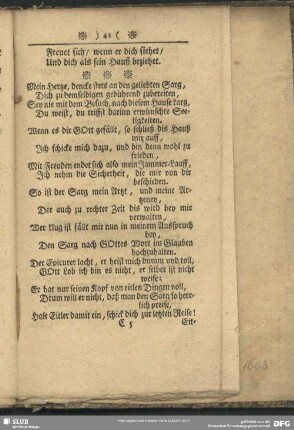 ) 41 (
Freuet sich/ wenn er dich siehet/
Und dich als sein Hauß beziehet.
Mein Hertze, dencke stets an den geliebten Sarg,
Dich zu demselbigen gebührend zubereiten,
Sey nie mit dem Besuch, nach diesem Hause karg,
Du weist, du triffst darinn erwünschte See-
ligkeiten.
Wenn es die GOtt gefällt, so schließ dis Hauß
mir auff,
Ich schicke mich dazu, und bin denn wohl zu
frieden,
Mit Freuden endet sich also mein Jammer-Lauff,
Ich nehm die Sicherheit, die mir von dir
beschieden.
So ist der Sarg mein Artzt, und meine Ar-
tzeney,
Der auch zu rechter Zeit dis wird bey mir
verwalten,
Wer klug ist fällt mir nun in meinem Ausspruch
bey,
Den Sarg nach GOttes Wort im Glauben
hochzuhalten.
Der Epicurer lacht, er heist mich dumm und toll,
GOtt Lob ich bin es nicht, er selber ist nicht
weise;
Er hat nur seinen Kopf von eitlen Dingen voll,
Drum will er nicht, daß man den Sarg so herr-
lich preise,
Halt Eitler damit ein, schick dich zur letzten Reise!
C 5
Eit-
SLUB
DFG